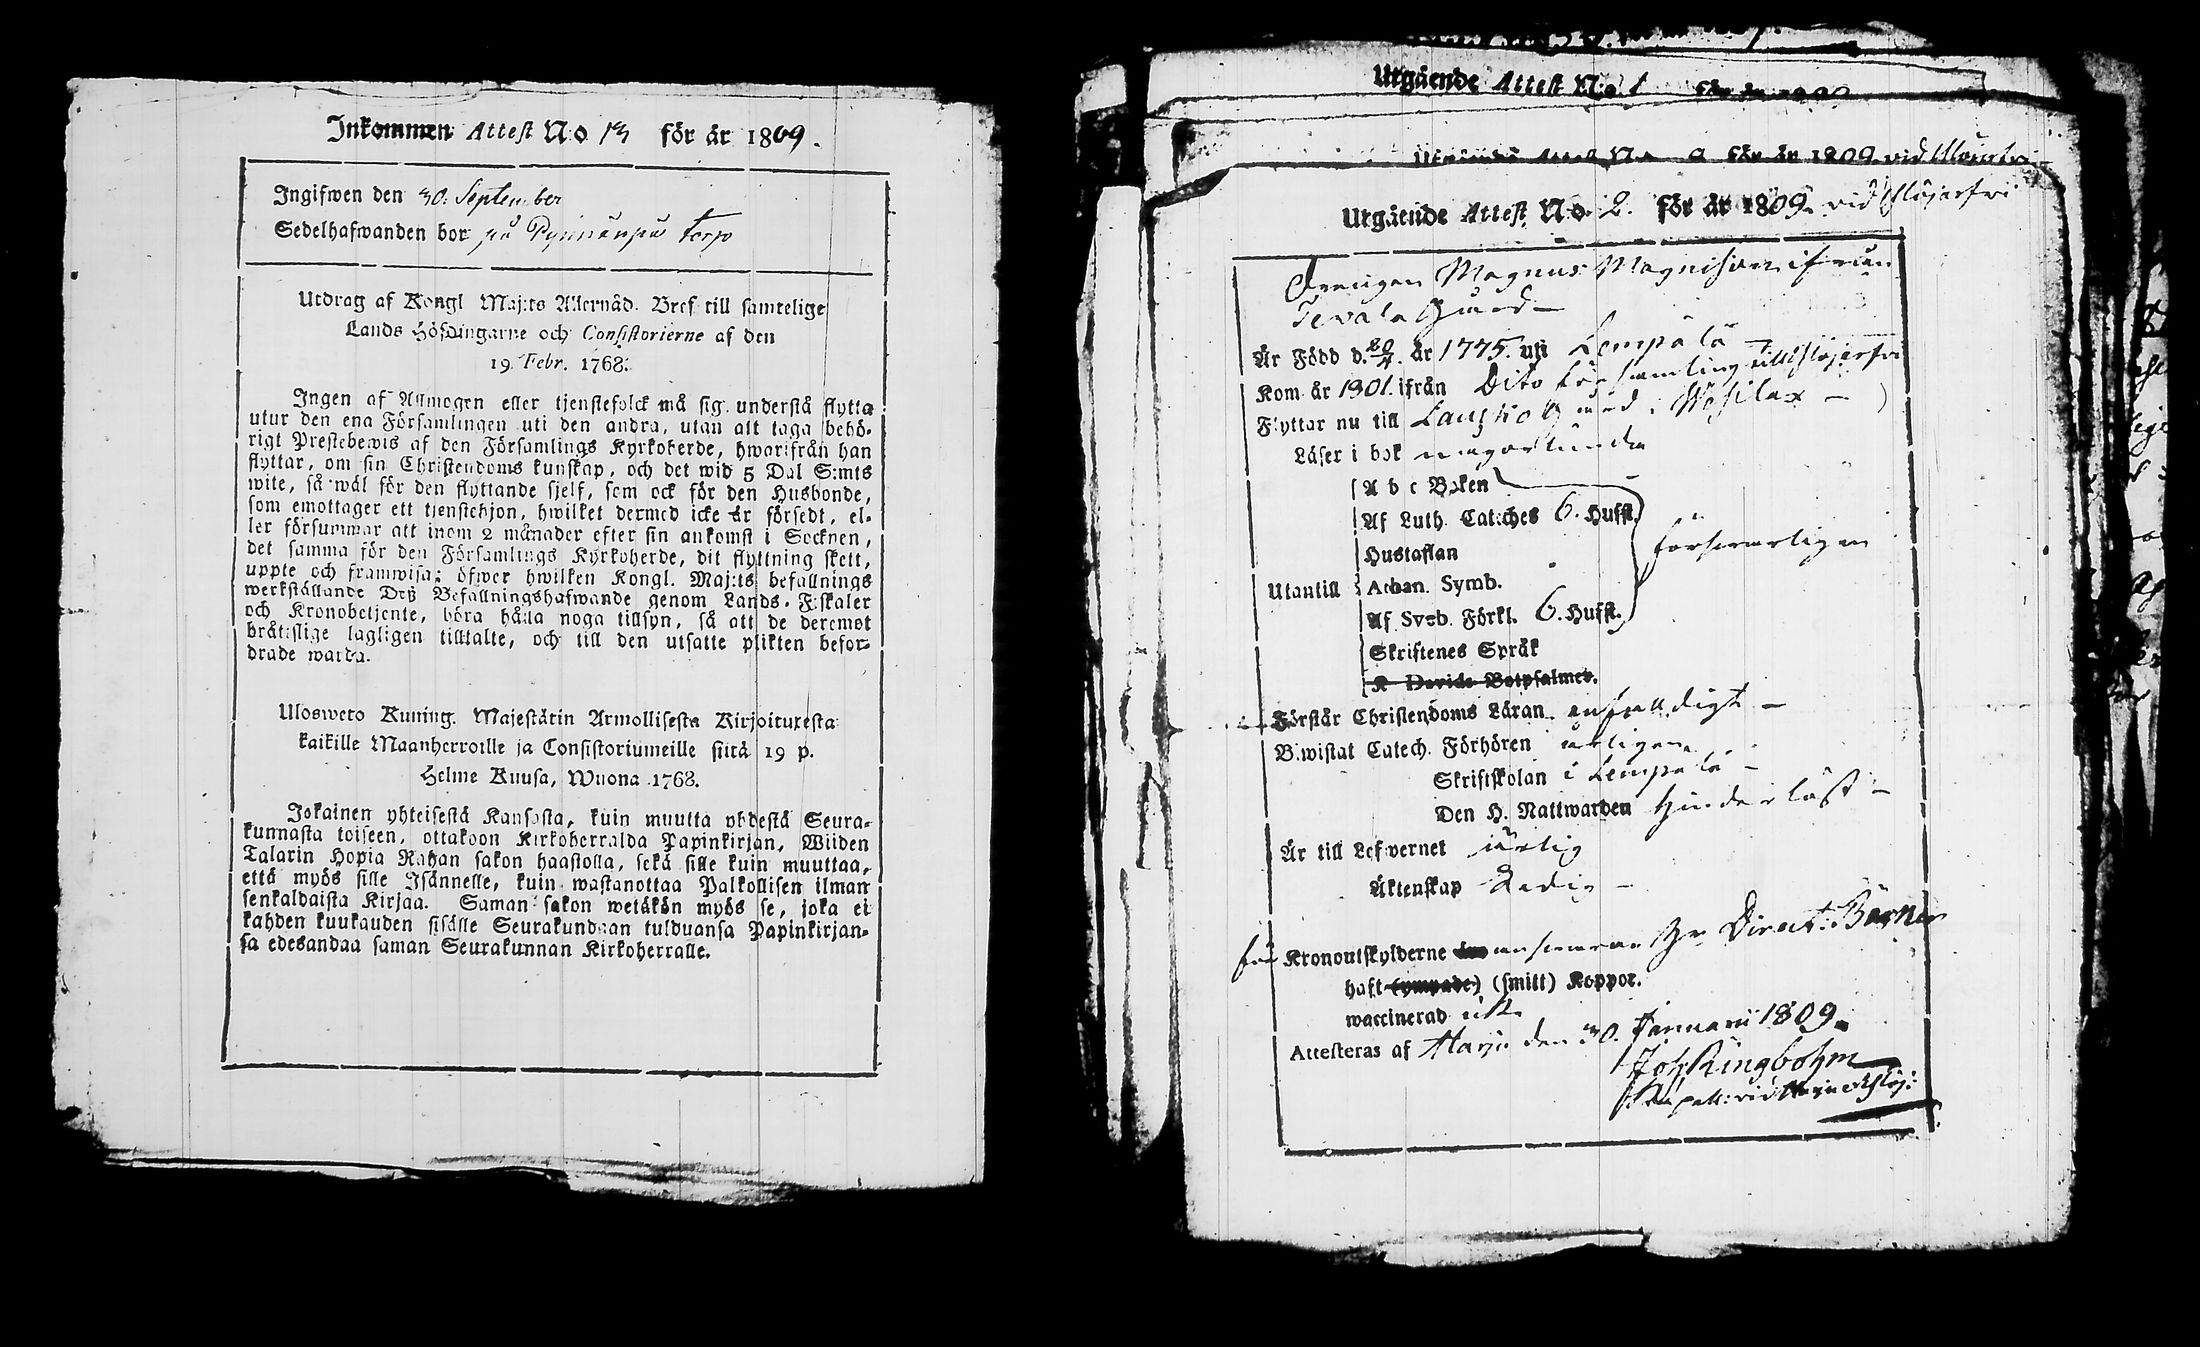 Inkommen Attest N:o 13 för år 1809.
Ingifwen den 30. September
Sedelhafwanden bor på torp
Utdrag af Kongl Maj:ts Allernåd. Bref till samtelige
Lands Höfdingarne och Consistorierne af den
19 Febr. 1768.
Ingen af Allmogen eller tjenstefolck må sig understå flytta
utur den ena Församlingen uti den andra, utan att taga behö-
rigt Prestebewis af den Församlings Kyrkoherde, hwarifrån han
flyttar, om sin Christendoms kunskap, och det wid 5 Dal S:mts
wite, så wäl för den flyttande sjelf, som ock för den Husbonde,
som emottager ett tjenstehjon, hwilket dermed icke är försedt, el-
ler försummar att inom 2 månader efter sin ankomst i Socknen,
det samma för den Församlings Kyrkoherde, dit flyttning skett,
uppte och framwisa; öfwer hwilken Kongl. Maj:ts befallnings
werkställande Deß Befallningshafwande genom Lands-Fiskaler
och Kronobetjente, böra hålla noga tillsyn, så att de deremot
brättslige lagligen tilltalte, och till den utsatte plikten befor-
drade warda.
Ulosweto Kuning. Majestätin Armollisesta Kirjoituxesta
kaikille Maanherroille ja Consistoriumeille siitä 19 p.
Helme Kuusa, Wuona 1768.
Jokainen yhteisestä Kansasta, kuin muutta yhdestä Seura-
kunnasta toiseen, ottakoon Kirkoherralda Papinkirjan, Wiiden
Talarin Hopia Rahan sakon haastolla, sekä sille kuin muuttaa,
että myös sille Isännelle, kuin wastanottaa Palkollisen ilman
senkaldaista Kirjaa. Saman sakon wetäkön myös se, joka ei
kahden kuukauden sisälle Seurakundaan tulduansa Papinkirjan-
sa edesandaa saman Seurakunnan Kirkoherralle.
Utgående Attest N:o 1 för år
Utgående Attest N:o för år 1809 vid
Utgående Attest N:o 2. för år 1809. vid
Drengen Magnus Magnisson ifrån
Tevala Gård
Är Född d. 20/4 år 1775. uti Lempälä
Kom år 1801. ifrån Dito församling till
Flyttar nu till Laukko Gård i Wesilax
Läser i bok någorlunda
A b c Boken
Af Luth. Catéches 6. Hufst.
Hustaflan
försvarligen
Utantill Athan. Symb.
Af Sveb. Förkl. 6. Hufst.
Skriftenes Språk
K Davids Botpsalmer.
Förstår Christendoms Läran enfalldigt
B.wistat Catech. Förhören årligen
Skriftskolan i Lempälä
Den H. Nattwarden hinderlöst
Är till Lefwernet ärlig
Äktenskap Ledig
för Kronoutskylderne ansvarar Hr Direct:
haft (ympade) (smitt) Koppor.
waccinerad icke
Attesteras af Harju den 30. Januarii 1809.
Joh Ringbohm